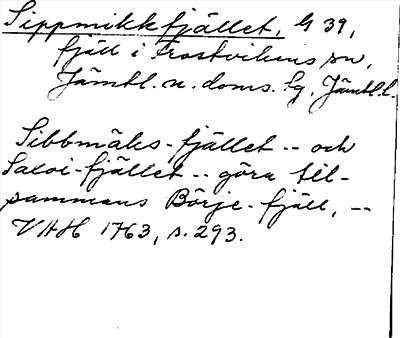 Sippmikkfjället, G 39,
fjäll i Frostvikens sn,
Jämtl. n. doms. lg, Jämtl. l.
Sibbmäks-fjället -- och
Saxoi-fjället -- göra til-
sammans Börje-fjäll, --
VAH 1763, s. 293.